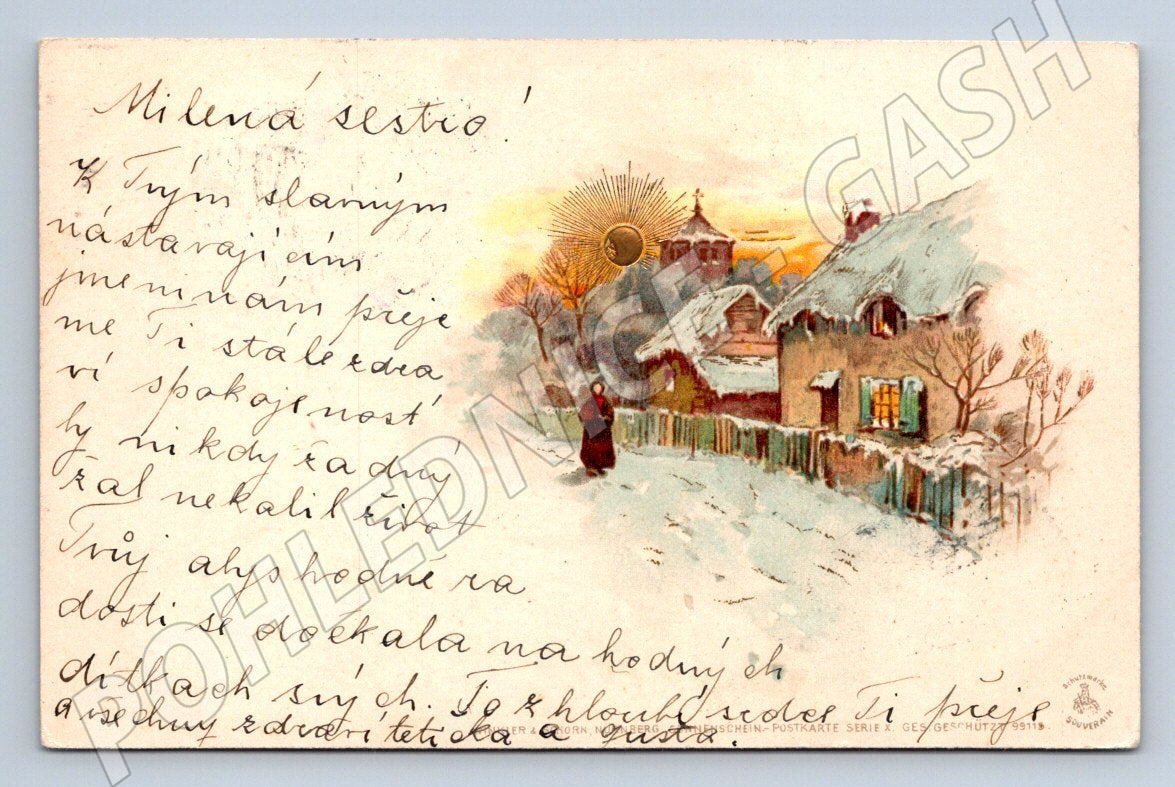 Milená sestro!
K Tvým slavným
nástavajícím
jmeninám přeje
me Ti stálé zdra
ví spokojenost
by nikdy žadný
žal nekalil život
Tvůj abys hodně ra
dosti se dočkala na hodných
dítkach svých. To z hloubí srdce Ti přeje
a všechny zdraví tetička a gusta.
NÜRNBERG SONNENSCHEIN-POSTKARTE SERIE X. GES. GESCHÜTZT 99119.
Schutzmarke
SOUVERAIN
POHLEDNICE-GASH